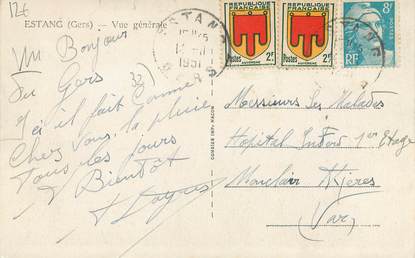 126
ESTANG (Gers) — Vue générale
Un Bonjour
Du Gers
Ici il fait comme
Chez vous, la pluie
Tous les jours
Bientôt
ESTANG
1951
GERS
REPUBLIQUE FRANÇAISE
Postes 2F
AUVERGNE
REPUBLIQUE FRANÇAISE
Postes 2F
AUVERGNE
8F
POSTES
RF
COMBIER IMP. MACON
Messieurs Les Malades
Hopital 1er Etage
Hyères
(Var)